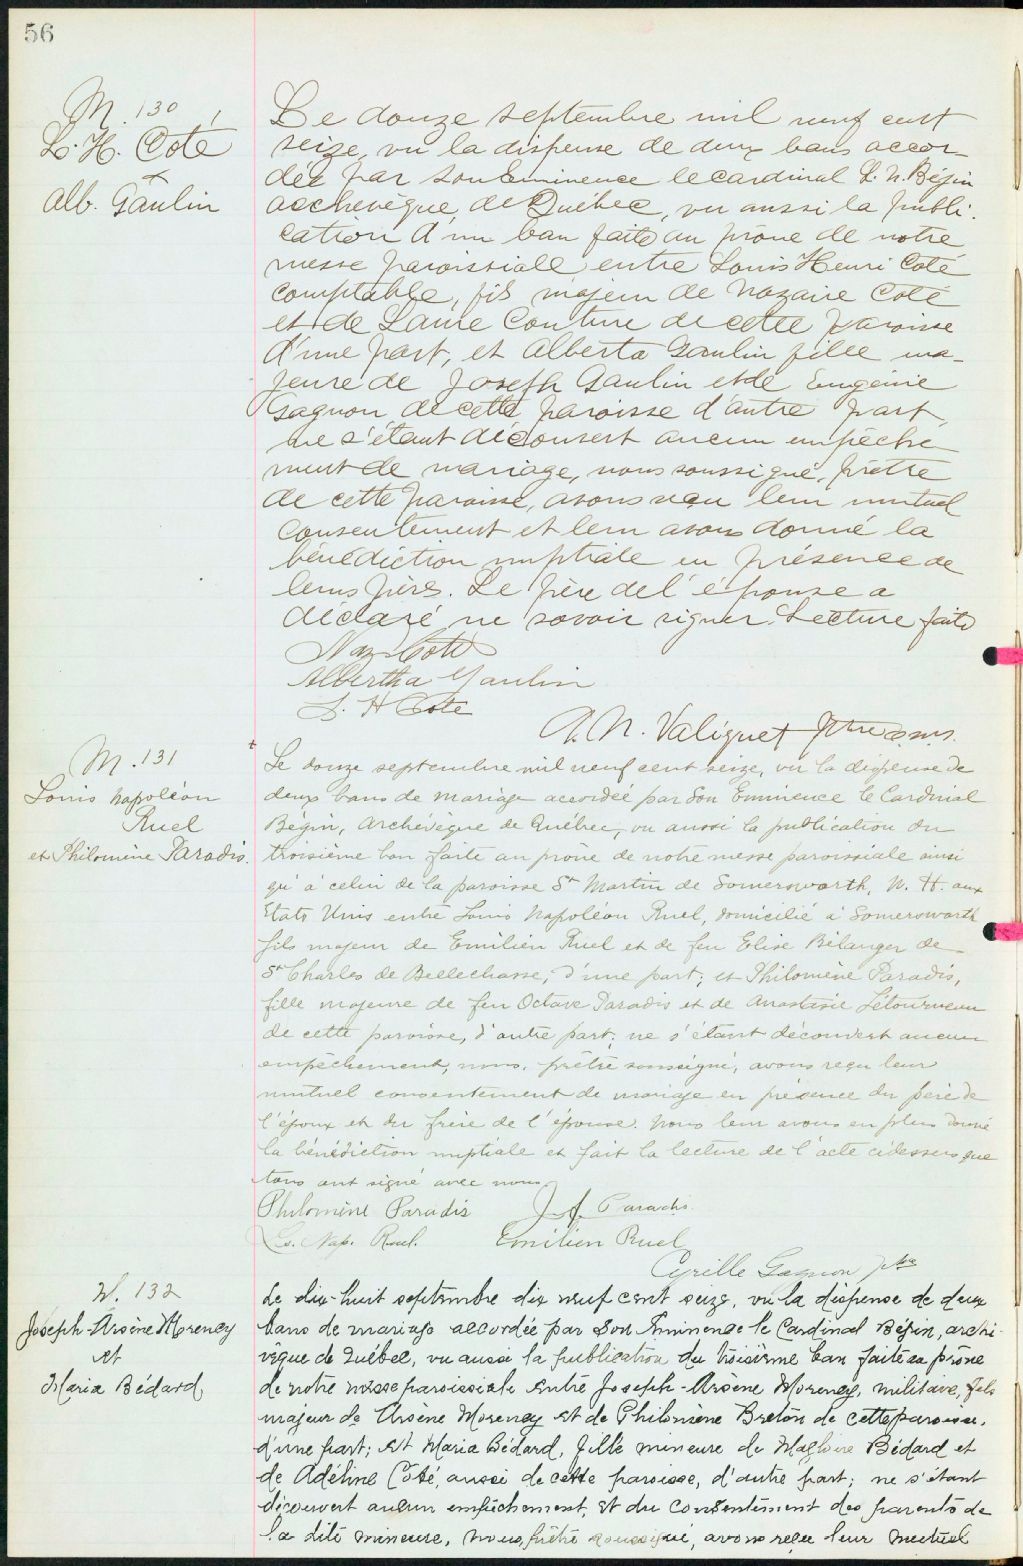 56
M. 130
L. H. Coté
&
Alb. Gaulin
Le douze septembre mil neuf cent
seize, vu la dispense de deux bans accor-
dée par son Eminence le cardinal L. N. Bégin
archevêque de Québec, vu aussi la publi-
cation d'un ban faite au prône de notre
messe paroissiale entre Louis Henri Coté
comptable, fils majeur de Nazaire Coté
et de Laure Couture de cette paroisse
d'une part, et Alberta Gaulin fille ma-
jeure de Joseph Gaulin et de Eugénie
Gagnon de cette paroisse d'autre part,
ne s'étant découvert aucun empêche
ment de mariage, nous soussigné, prêtre
de cette paroisse, avons reçu leur mutuel
consentement et leur avons donné la
bénédiction nuptiale en présence de
leurs pères. Le père de l'épouse a
déclaré ne savoir signer. Lecture faite
Naz Coté
Albertha Gaulin
L. H Cote
A. N. Valiquet ptre o.m.i.
M. 131
Louis Napoléon
Ruel
et Philomène Paradis.
Le douze septembre mil neuf cent seize, vu la dispense de
deux bans de mariage accordée par Son Eminence le Cardinal
Bégin, Archevêque de Québec, vu aussi la publication du
troisième ban faite au prône de notre messe paroissiale ainsi
qu'à celui de la paroisse St Martin de Somersworth, N. H. aux
Etats Unis entre Louis Napoléon Ruel, domicilié à Somersworth
fils majeur de Emilien Ruel et de feu Elise Bélanger de
St Charles de Bellechasse, d'une part; et Philomène Paradis,
fille majeure de feu Octave Paradis et de Anastasie Létourneau
de cette paroisse, d'autre part; ne s'étant découvert aucun
empêchement, nous, prêtre soussigné, avons reçu leur
mutuel consentement de mariage en présence du père de
l'époux et du frère de l'épouse. Nous leur avons en plus donné
la bénédiction nuptiale et fait la lecture de l'acte cidessus que
tous ont signé avec nous
Philomène Paradis J. A. Paradis
Ls. Nap. Ruel. Emilien Ruel
Cyrille Gagnon ptre
M. 132
Joseph-Arsène Morency
et
Maria Bédard
Le dix-huit septembre dix neuf cent seize, vu la dispense de deux
bans de mariage accordée par Son Eminence le Cardinal Bégin, arche-
vêque de Québec, vu aussi la publication du troisième ban faite au prône
de notre messe paroissiale entre Joseph-Arsène Morency, militaire, fils
majeur de Arsène Morency et de Philomène Breton de cette paroisse,
d'une part; et Maria Bédard, fille mineure de Magloire Bédard et
de Adéline Côté, aussi de cette paroisse, d'autre part; ne s'étant
découvert aucun empêchement, et du consentement des parents de
la dite mineure, nous, prêtre soussigné, avons reçu leur mutuel